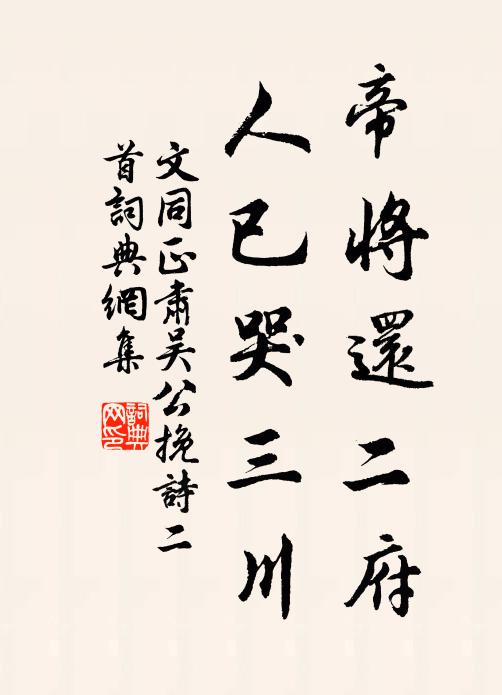 帝將還二府
人已哭三川
文同正肅吳公挽詩二
首詞典網集
詞典
网印